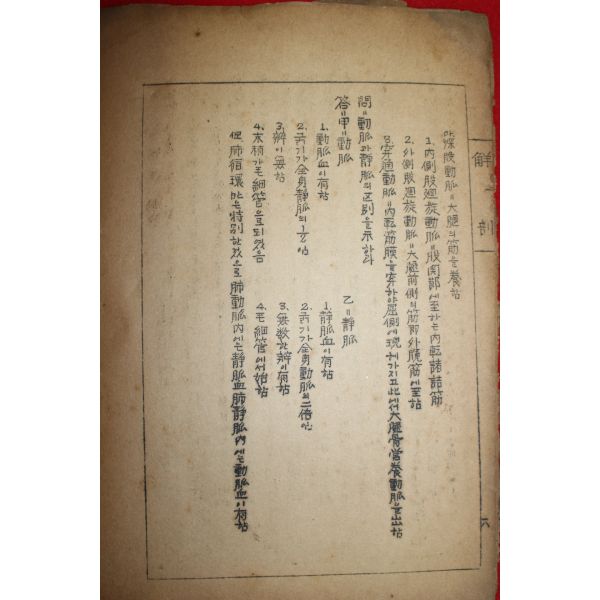 解剖
深股動脈〃大腿의筋을養함
1. 內側股廻旋動脈〃股関節에至하는內転諸筋
2. 外側股廻旋動脈〃大腿前側의筋即外腹筋에至함
3. 穿通動脈〃內転筋腱을穿하야屈側에現 가지고此에서大腿骨営養動脈을出함
問〃動脈과靜脈의区別을示하라
答〃甲〃動脈
1. 動脈血이有함
2. 广가全身靜脈의½
3. 辨이無함
4. 末梢가毛細管으로되였음
乙〃靜脈
1. 靜脈血이有함
2. 가全身動脈의二倍
3. 無数한辨이有함
4. 毛細管에서始함
但肺循環만은特別한것으로肺動脈內에는靜脈血肺靜脈內에는動脈血이有함
六